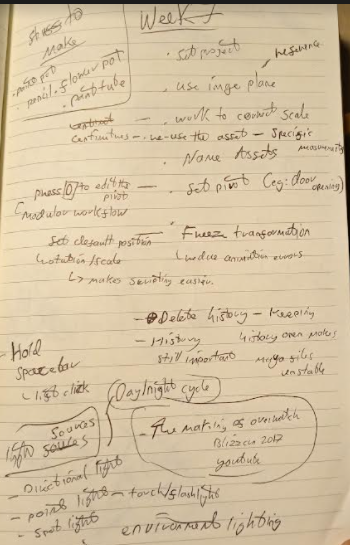 Week 7
stuff to
make
pencil . flower pot
paint tube
- set project
reference
- use image plane
- work to correct scale
- re-use the asset - specific
measurements
- Name Assets
press D to edit the
pivot
- set pivot (eg: door
opening)
modular workflow
set default position
rotation/scale
↳ makes scripting easier.
- Freeze transformation
↳ reduce animation errors
- Delete history - Keeping
history open makes
Maya files
unstable
- History
still important
- Hold
spacebar
↳ left click
Day/night cycle
light sources
sources
- The making of overwatch
Blizzcon 2017
youtube
- Directional light
- point light - touch/flashlight
- spot light
environment lighting